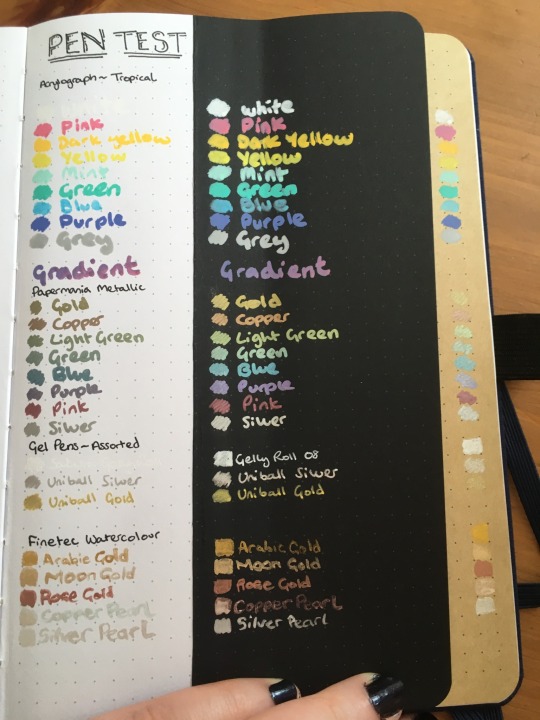 PEN TEST
Acrylograph ~ Tropical
Pink
Dark Yellow
Yellow
Mint
Green
Blue
Purple
Grey
Gradient
Papermania Metallic
Gold
Copper
Light Green
Green
Blue
Purple
Pink
Silver
Gel Pens ~ Assorted
Uniball Silver
Uniball Gold
Finetec Watercolour
Arabic Gold
Moon Gold
Rose Gold
Copper Pearl
Silver Pearl
White
Pink
Dark Yellow
Yellow
Mint
Green
Blue
Purple
Grey
Gradient
Gold
Copper
Light Green
Green
Blue
Purple
Pink
Silver
Gelly Roll 08
Uniball Silver
Uniball Gold
Arabic Gold
Moon Gold
Rose Gold
Copper Pearl
Silver Pearl